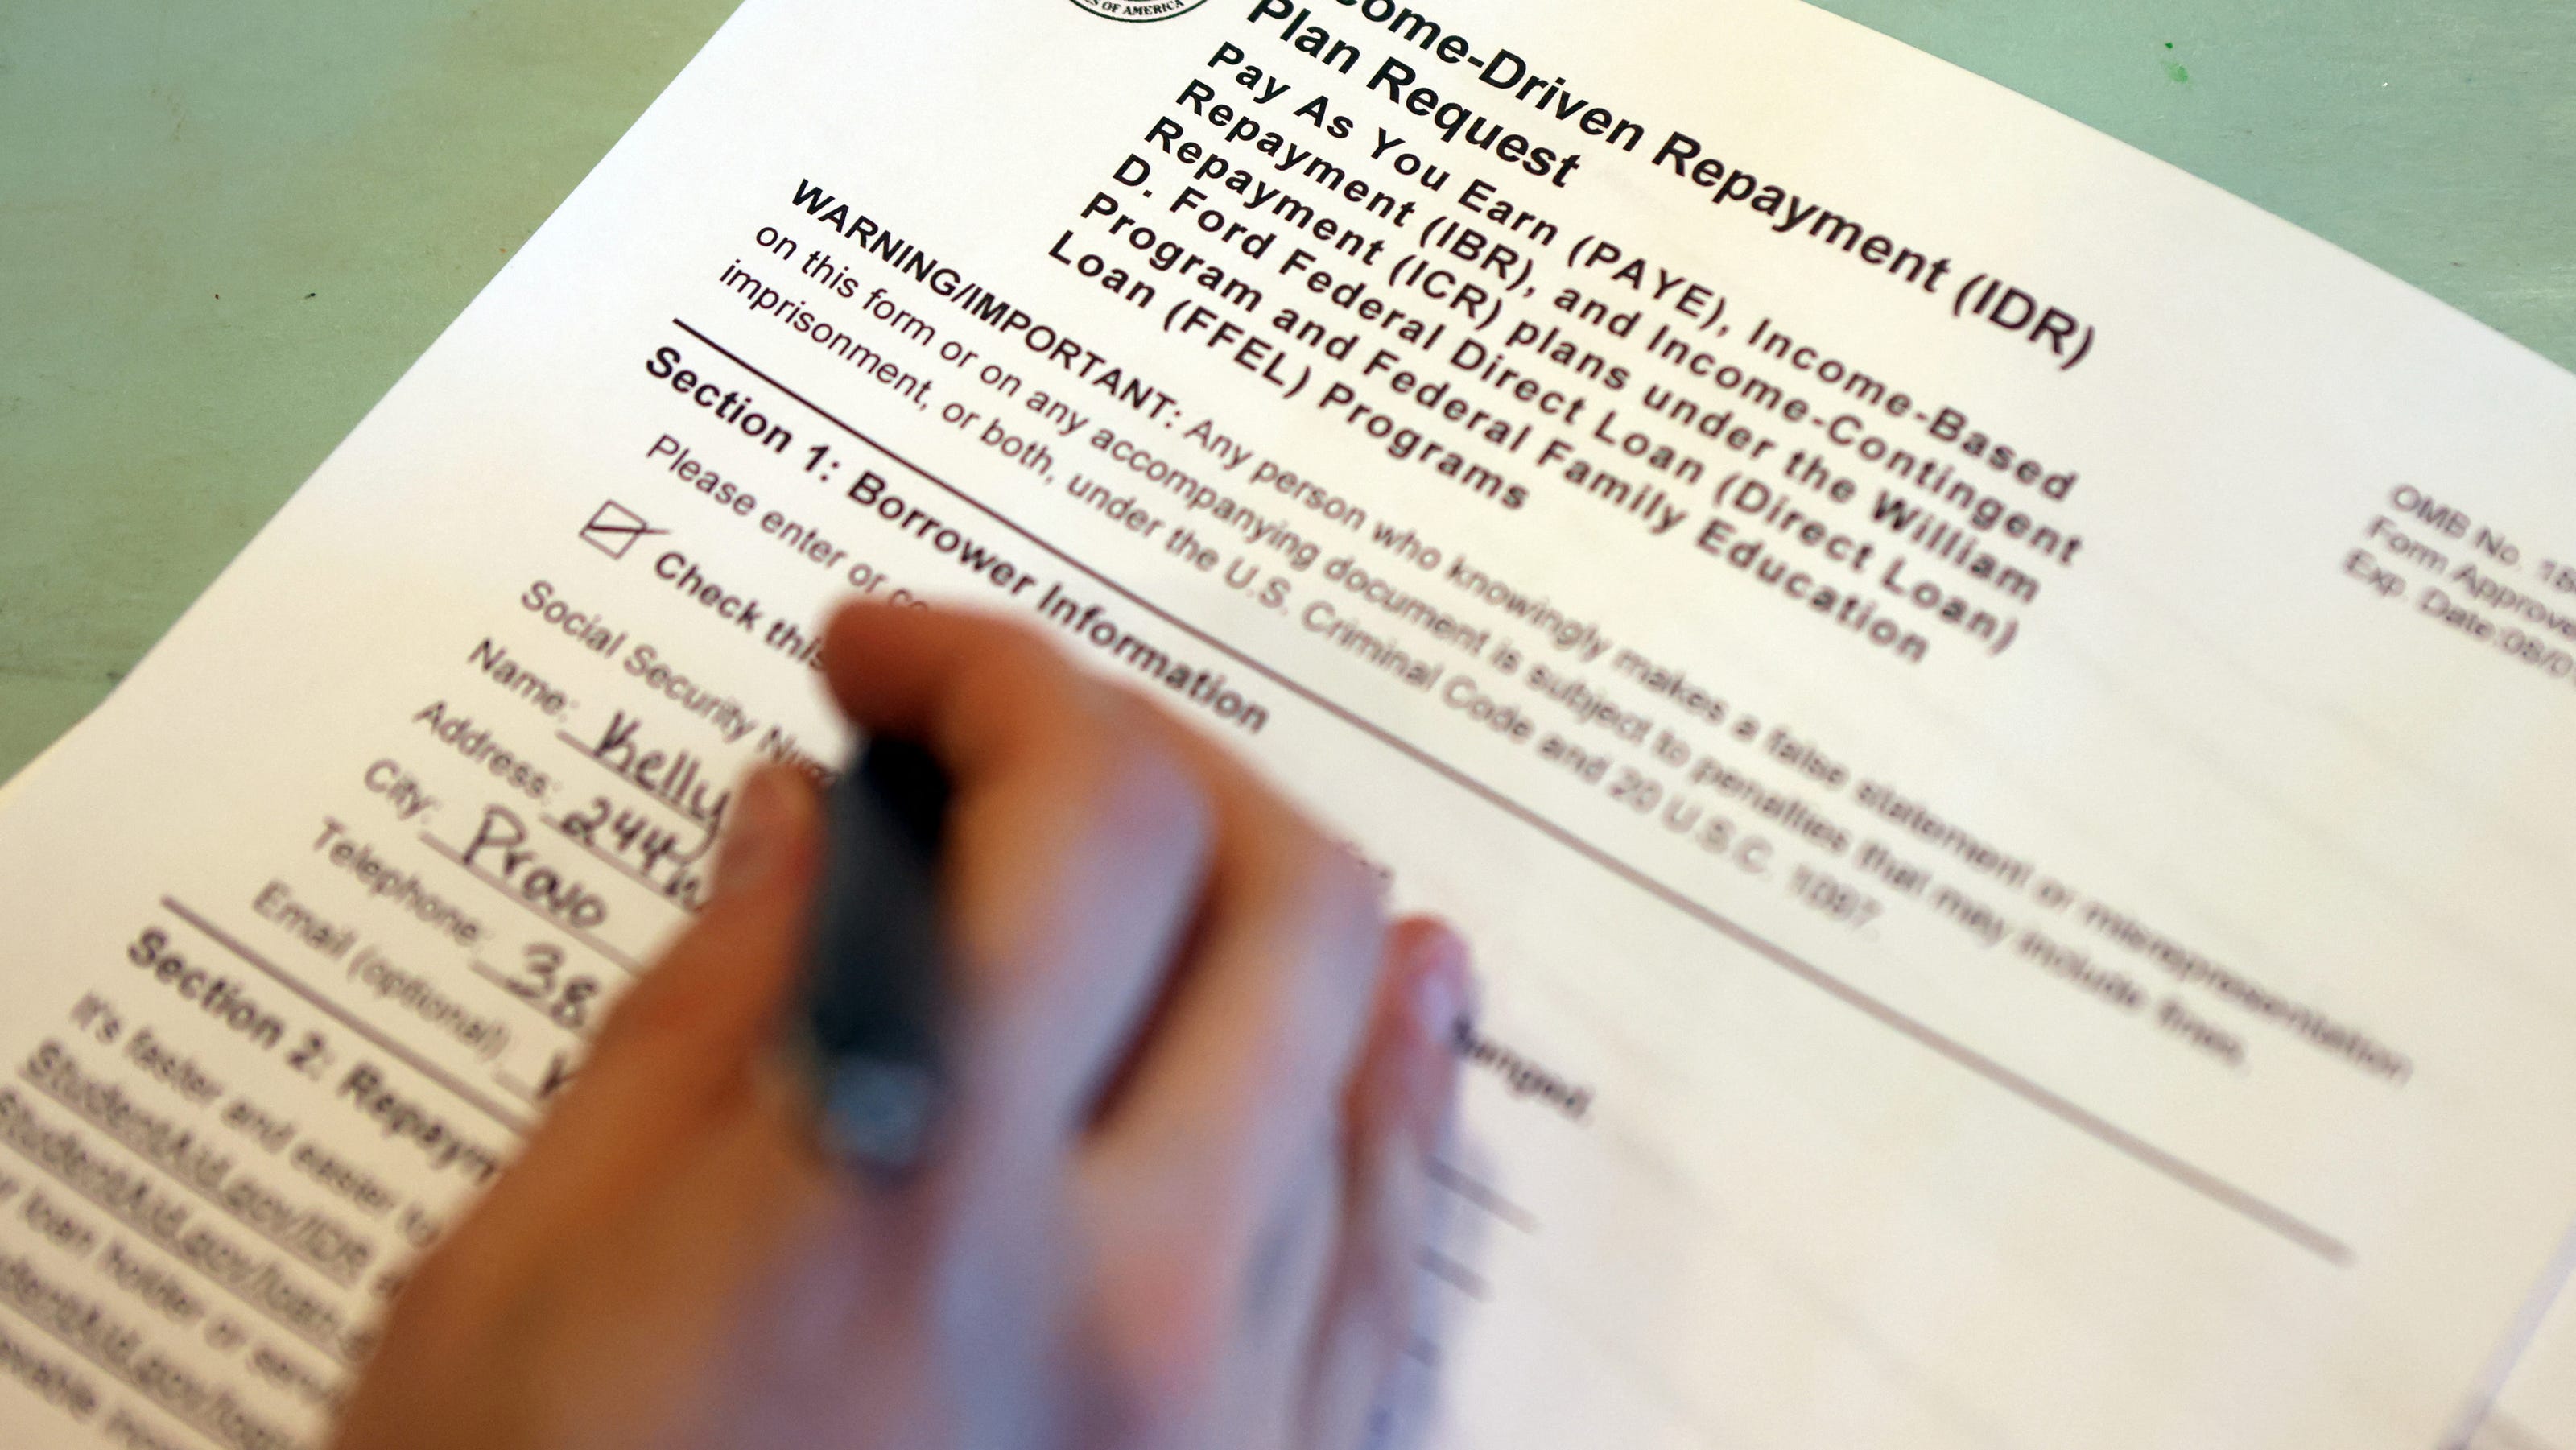 ES OF AMERICA
come-Driven Repayment (IDR)
Plan Request
Pay As You Earn (PAYE), Income-Based
Repayment (IBR), and Income-Contingent
Repayment (ICR) plans under the William
D. Ford Federal Direct Loan (Direct Loan)
Program and Federal Family Education
Loan (FFEL) Programs
OMB No. 18
Form Approve
Exp. Date:08/
WARNING/IMPORTANT: Any person who knowingly makes a false statement or misrepresentation
on this form or on any accompanying document is subject to penalties that may include fines,
imprisonment, or both, under the U.S. Criminal Code and 20 U.S.C. 1097.
Section 1: Borrower Information
Please enter or co
Check this
Social Security Num
Name: Kelly
Address: 244
City: Provo
Telephone: 38
Email (optional)
Section 2: Repaym
It's faster and easier to
StudentAid.gov/IDR
StudentAid.gov/loan
r loan holder or serv